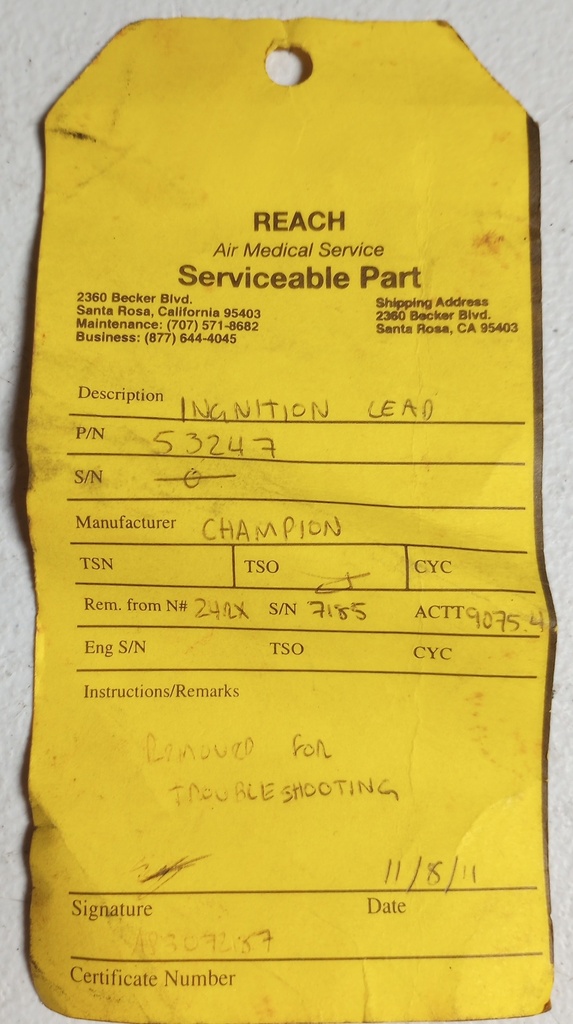 REACH
Air Medical Service
Serviceable Part
2360 Becker Blvd.
Santa Rosa, California 95403
Maintenance: (707) 571-8682
Business: (877) 644-4045
Shipping Address
2360 Becker Blvd.
Santa Rosa, CA 95403
Description INGNITION LEAD
P/N 53247
S/N
Manufacturer CHAMPION
TSN TSO CYC
Rem. from N# S/N 7185 ACTT 9075.4
Eng S/N TSO CYC
Instructions/Remarks
REMOVED FOR
TROUBLESHOOTING
11/8/11
Signature Date
Certificate Number